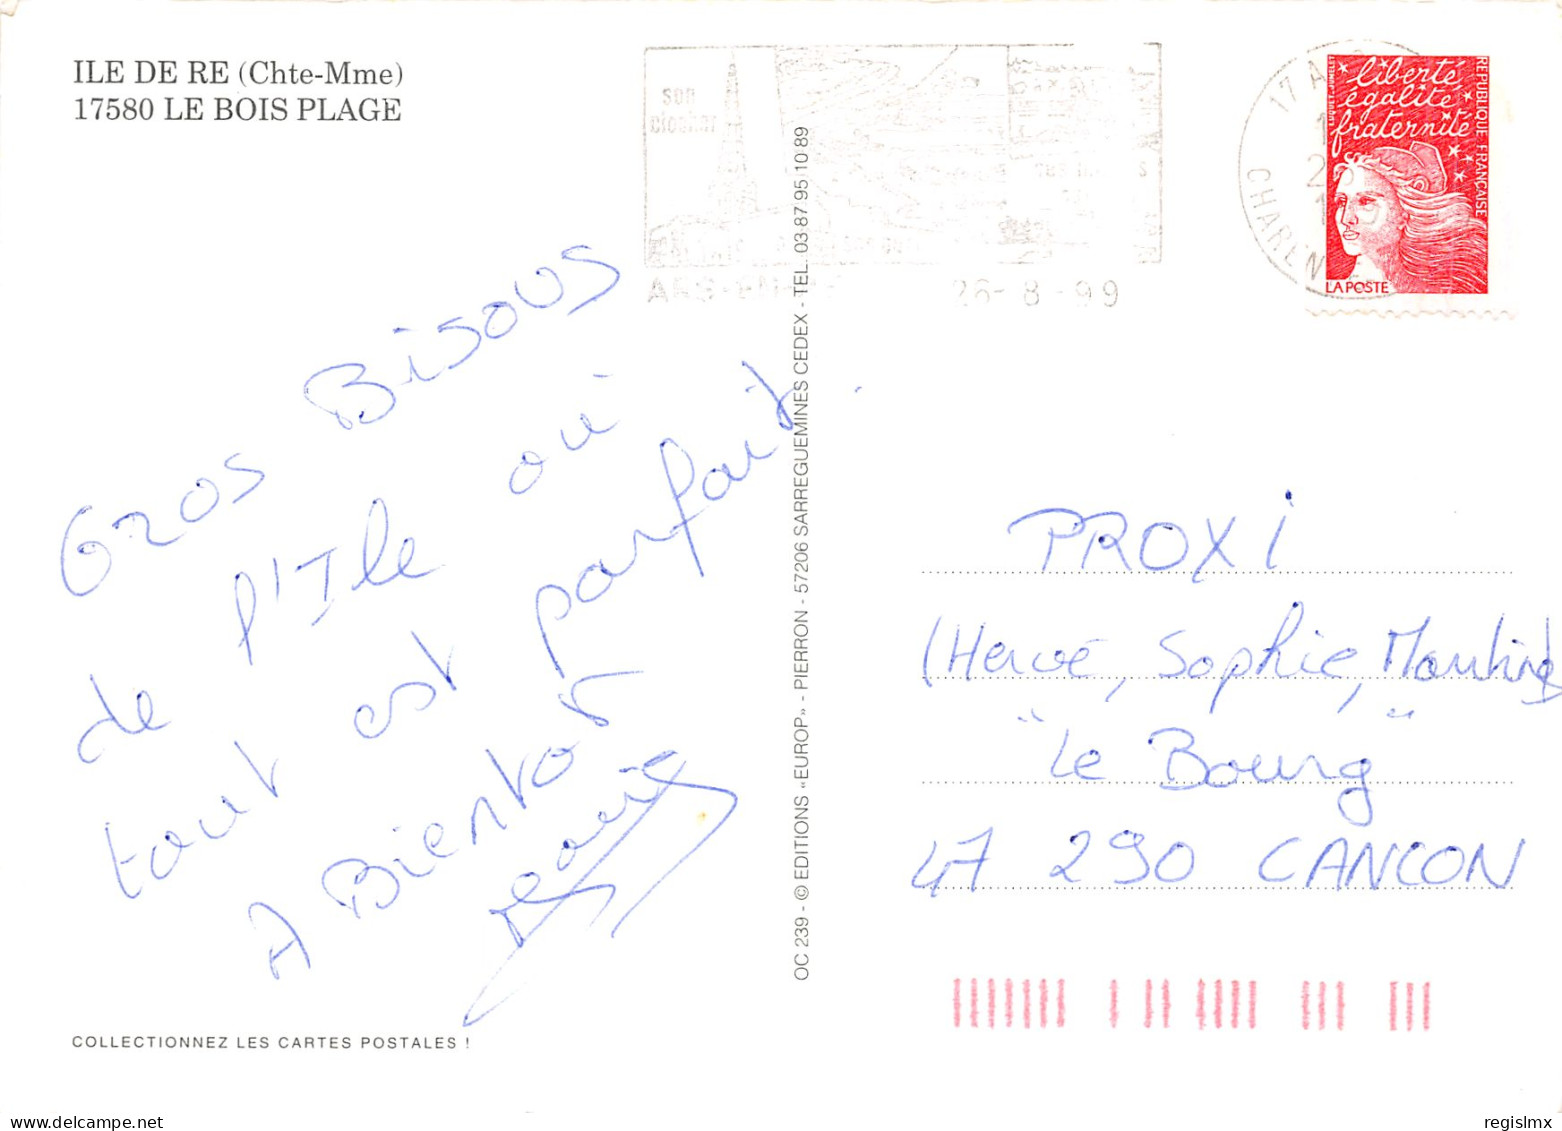 ILE DE RE (Chte-Mme)
17580 LE BOIS PLAGE
son
clocher
ARS-EN-RE
26-8-99
17 A
CHAREN
liberté
égalité
fraternité
REPUBLIQUE FRANÇAISE
LA POSTE
Gros Bisous
de l'Ile où
tout est parfait.
A Bientôt
OC 239 - © EDITIONS «EUROP» - PIERRON - 57206 SARREGUEMINES CEDEX - TEL. 03 87 95 10 89
PROXI
(Hervé, Sophie,
"Le Bourg"
47 290 CANCON
COLLECTIONNEZ LES CARTES POSTALES !
regislmx